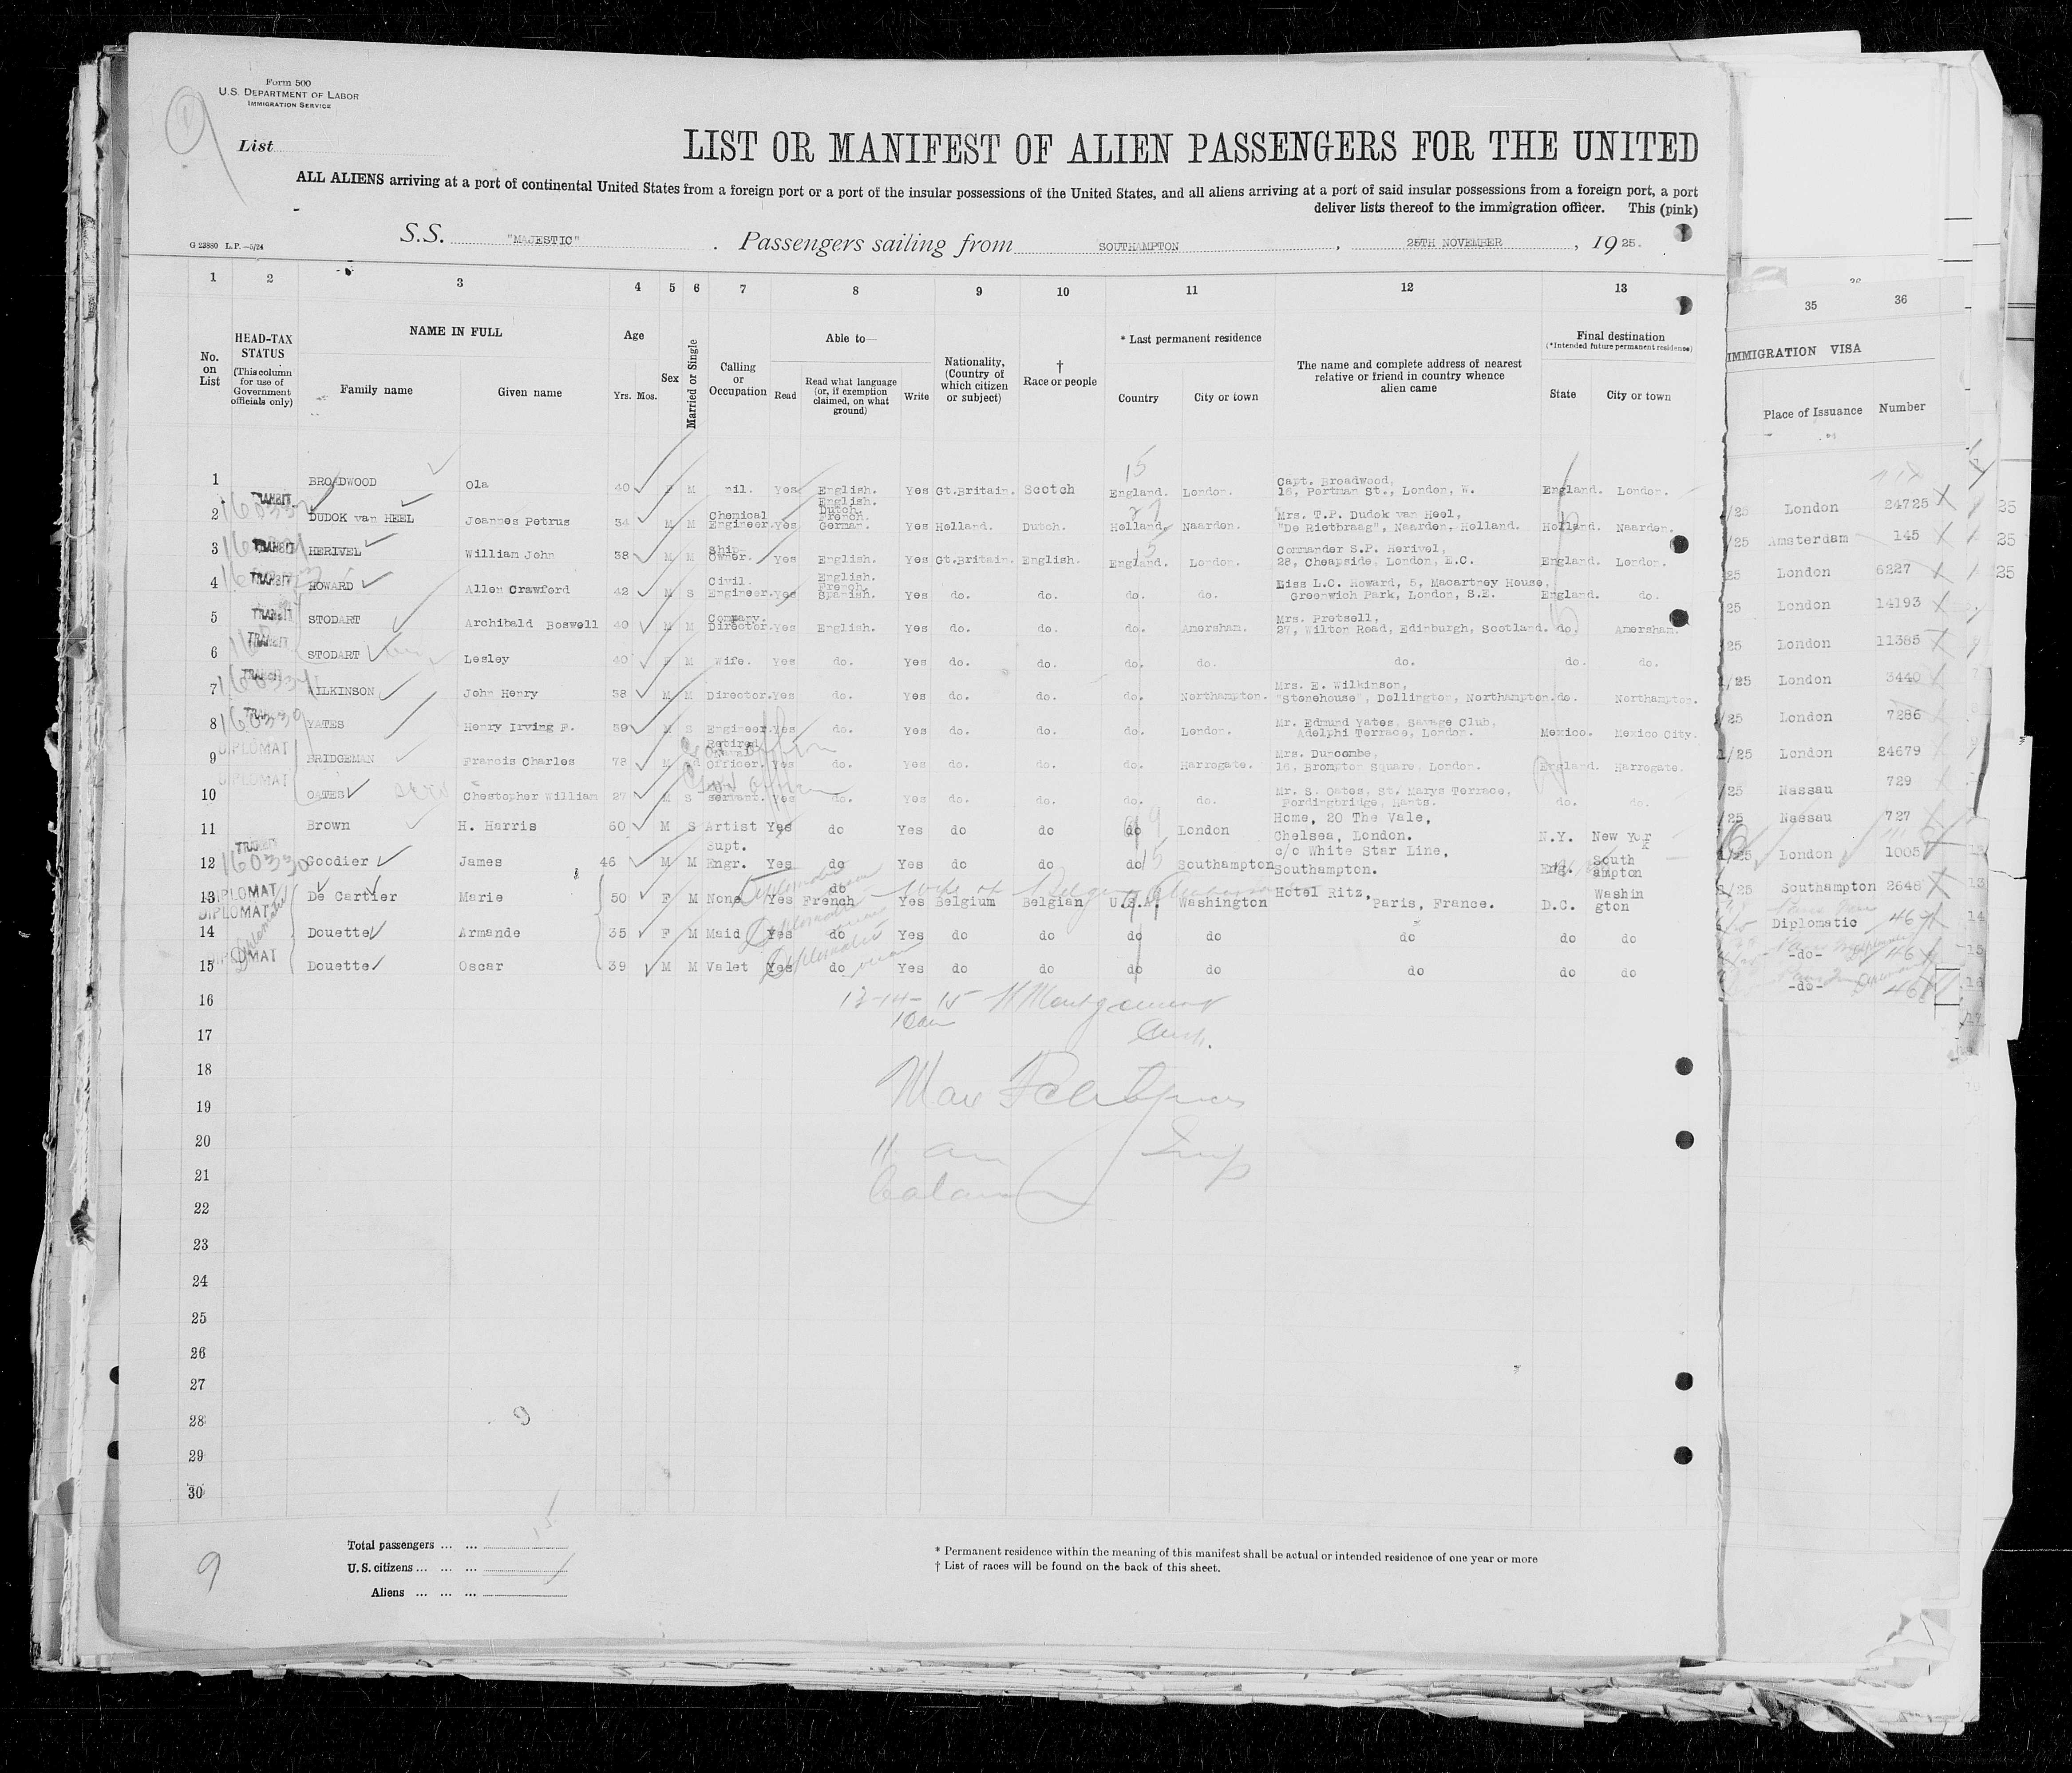 Form 500
U.S. DEPARTMENT OF LABOR
IMMIGRATION SERVICE
List
LIST OR MANIFEST OF ALIEN PASSENGERS FOR THE UNITED
ALL ALIENS arriving at a port of continental United States from a foreign port or a port of the insular possessions of the United States, and all aliens arriving at a port of said insular possessions from a foreign port, a port
deliver lists thereof to the immigration officer. This (pink)
G 23880 L.P.—5/24
S.S. "MAJESTIC" . Passengers sailing from SOUTHAMPTON , 25TH NOVEMBER , 19 25.
1 2 3 4 5 6 7 8 9 10 11 12 13 35 36
No. on List
HEAD-TAX STATUS (This column for use of Government officials only)
NAME IN FULL
Family name Given name
Age
Yrs. Mos.
Sex
Married or Single
Calling or Occupation
Able to—
Read Read what language (or, if exemption claimed, on what ground) Write
Nationality, (Country of which citizen or subject)
† Race or people
* Last permanent residence
Country City or town
The name and complete address of nearest relative or friend in country whence alien came
Final destination
(*Intended future permanent residence)
State City or town
IMMIGRATION VISA
Place of Issuance Number
1 BROADWOOD Ola 40 F M nil. Yes English. Yes Gt.Britain. Scotch England. London. Capt. Broadwood, 15, Portman St., London, W. England. London. London 24725
2 TRANSIT DUDOK van HEEL Joannes Petrus 34 M M Chemical Engineer. Yes English. Dutch. French. German. Yes Holland. Dutch. Holland. Naarden. Mrs. T.P. Dudok van Heel, "De Rietbraag", Naarden, Holland. Holland. Naarden. Amsterdam 145
3 TRANSIT HERIVEL William John 38 M M Ship Owner. Yes English. Yes Gt.Britain. English. England. London. Commander S.P. Herivel, 28, Cheapside, London, E.C. England. London. London 6227
4 TRANSIT HOWARD Allen Crawford 42 M S Civil. Engineer. Yes English. French. Spanish. Yes do. do. do. do. Miss L.C. Howard, 5, Macartney House, Greenwich Park, London, S.E. England. do. London 14193
5 TRANSIT STODART Archibald Boswell 40 M M Company. Director. Yes English. Yes do. do. do. Amersham. Mrs. Pretsell, 27, Wilton Road, Edinburgh, Scotland. do. Amersham. London 11385
6 TRANSIT STODART Lesley 40 F M Wife. Yes do. Yes do. do. do. do. do. do. do. London 3440
7 TRANSIT WILKINSON John Henry 38 M M Director. Yes do. Yes do. do. do. Northampton. Mrs. E. Wilkinson, "Stonehouse", Dollington, Northampton. do. Northampton. London 7286
8 YATES Henry Irving F. 39 M S Engineer. Yes do. Yes do. do. do. London. Mr. Edmund Yates, Savage Club, Adelphi Terrace, London. Mexico. Mexico City. London 24679
9 DIPLOMAT BRIDGEMAN Francis Charles 78 M Retired Naval Officer. Yes do. Yes do. do. do. Harrogate. Mrs. Duncombe, 16, Brompton Square, London. England. Harrogate. Nassau 729
10 DIPLOMAT OATES Chestopher William 27 M S servant. Yes do. Yes do. do. do. do. Mr. S. Oates, St. Marys Terrace, Fordingbridge, Hants. do. do. Nassau 727
11 Brown H. Harris 60 M S Artist Yes do Yes do do do London Home, 20 The Vale, Chelsea, London. N.Y. New York London 1005
12 TRANSIT 160330 Goodier James 46 M M Supt. Engr. Yes do Yes do do do Southampton c/o White Star Line, Southampton. Eng. Southampton Southampton 2648
13 DIPLOMAT De Cartier Marie 50 F M None Yes do French Yes Belgium Belgian U.S.A. Washington Hotel Ritz, Paris, France. D.C. Washington Diplomatic 467
14 DIPLOMAT Douette Armande 35 F M Maid Yes do Yes do do do do do do do -do- 467
15 DIPLOMAT Douette Oscar 39 M M Valet Yes do Yes do do do do do do do -do- 467
16
17
18
19
20
21
22
23
24
25
26
27
28
29
30
Total passengers ... ...
U.S. citizens ... ... ...
Aliens ... ... ...
9
* Permanent residence within the meaning of this manifest shall be actual or intended residence of one year or more
† List of races will be found on the back of this sheet.